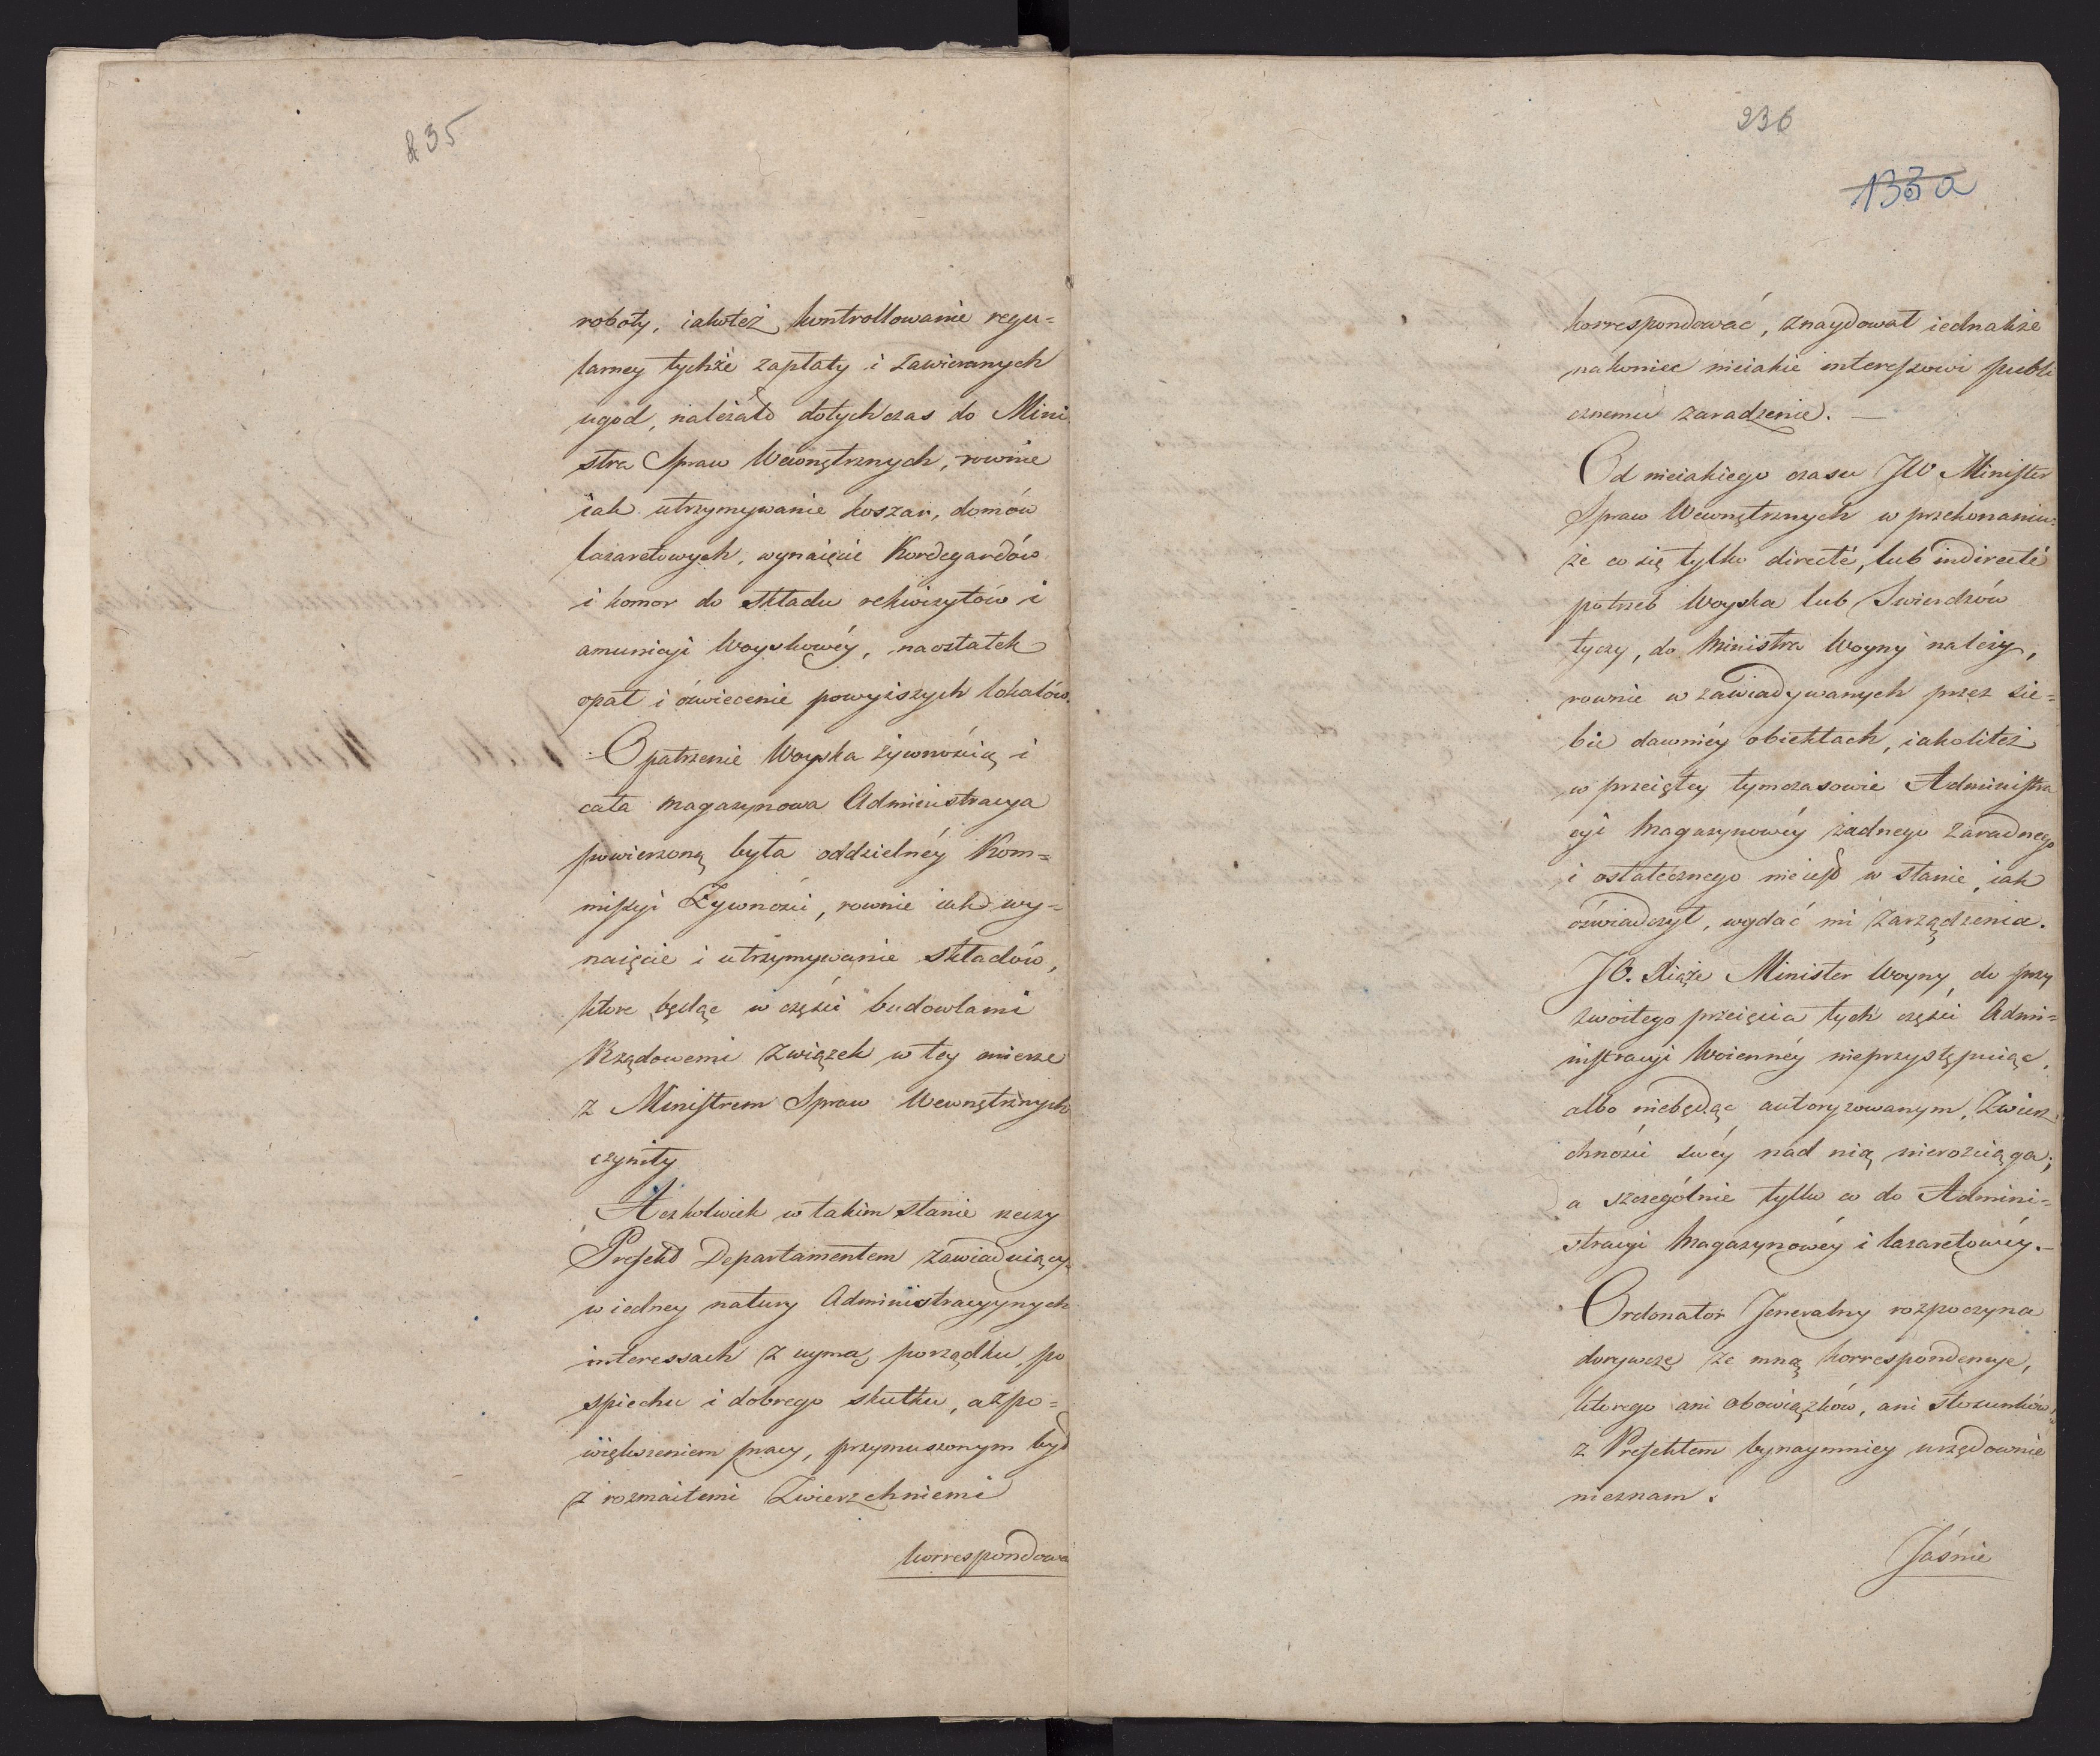 835
roboty, iakoteż kontrollowanie regu=
larney tychże zapłaty i zawieranych
ugod, należało dotychczas do Mini
stra Spraw Wewnętrznych, rownie
iak utrzymywanie koszar, domów
lazaretowych, wynaięcie Kordegardów
i komor do składu rekwizytów i
amunicyi Woyskowéy, naostatek
opał i oświecenie powyższych lokalów.
Opatrzenie Woyska żywnością i
cała magazynowa Administracya
powierzoną była oddzielnéy Kom=
missyi Żywności, rownie iako wy=
naięcie i utrzymywanie składów,
ktore będąc w części budowlami
Rządowemi związek w tey mierze
z Ministrem Spraw Wewnętrznych
czyniły
Aczkolwiek w takim stanie rzeczy
Prefekt Departamentem zawiaduiący
w iedney natury Administracyynych
interessach z uymą porządku, po
spiechu i dobrego skutku, a z po=
większeniem pracy, przymuszonym był
z rozmaitemi Zwierzchniemi
korrespondowa
236
133 a
korrespondować, znaydował iednakże
nakoniec nieiakie interessowi publi
cznemu zaradzenie. —
Od nieiakiego czasu JW Minister
Spraw Wewnętrznych w przekonaniu:
że co się tylko directé, lub indirecté
potrzeb Woyska lub Twierdzów
tyczy, do Ministra Woyny należy,
rownie w zawiadywanych przez sie=
bie dawniéy obiektach, iakoliteż
w przeiętey tymczasowie Administra
cyi Magazynowéy żadnego zaradnego
i ostatecznego nie iest w stanie, iak
oświadczył, wydać mi zarządzenia.
JO. Xiąże Minister Woyny, do przy
zwoitego przeięcia tych części Admi=
nistracyi Woiennéy nieprzystępuiąc,
albo niebędąc autoryzowanym, Zwierz=
chności swéy nad nią nierosciąga;
a szczególnie tylko co do Admini=
stracyi Magazynowéy i lazaretowéy.—
Ordonator Jeneralny rozpoczyna
dorywczę ze mną korrespondencye,
ktorego ani obowiązków, ani stosunków
z Prefektem bynaymniey urzędownie
nieznam.
Jaśnie